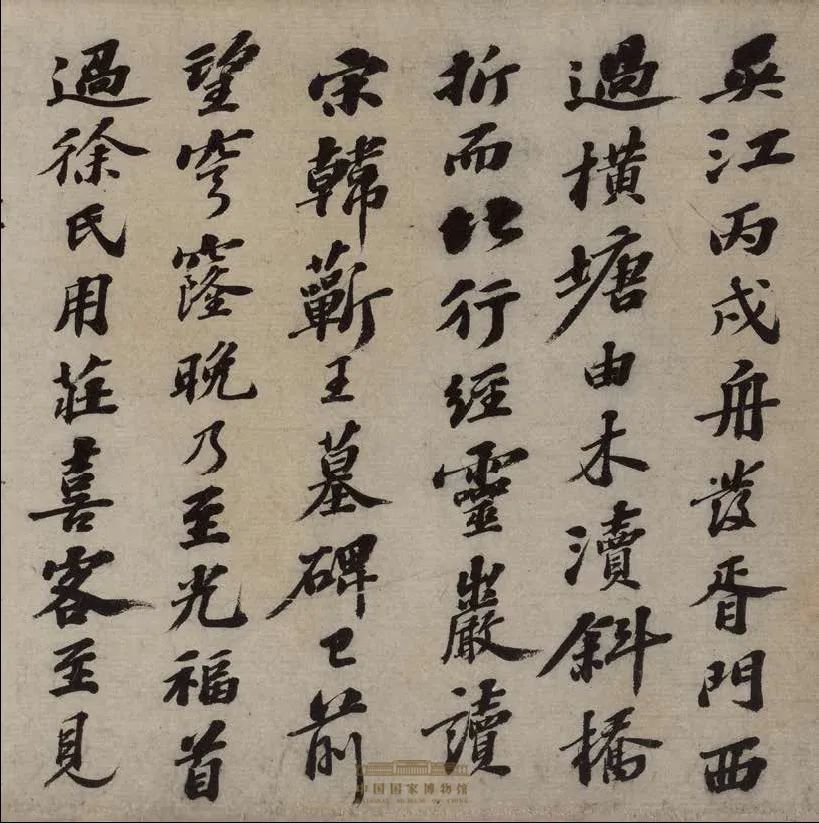 吳江丙戌舟發胥門西
過橫塘由木瀆斜橋
折而北行經靈巖讀
宋韓蘄王墓碑已前
望穹窿晚乃至光福首
過徐氏用莊喜客至見
中国国家博物馆
NATIONAL MUSEUM OF CHINA